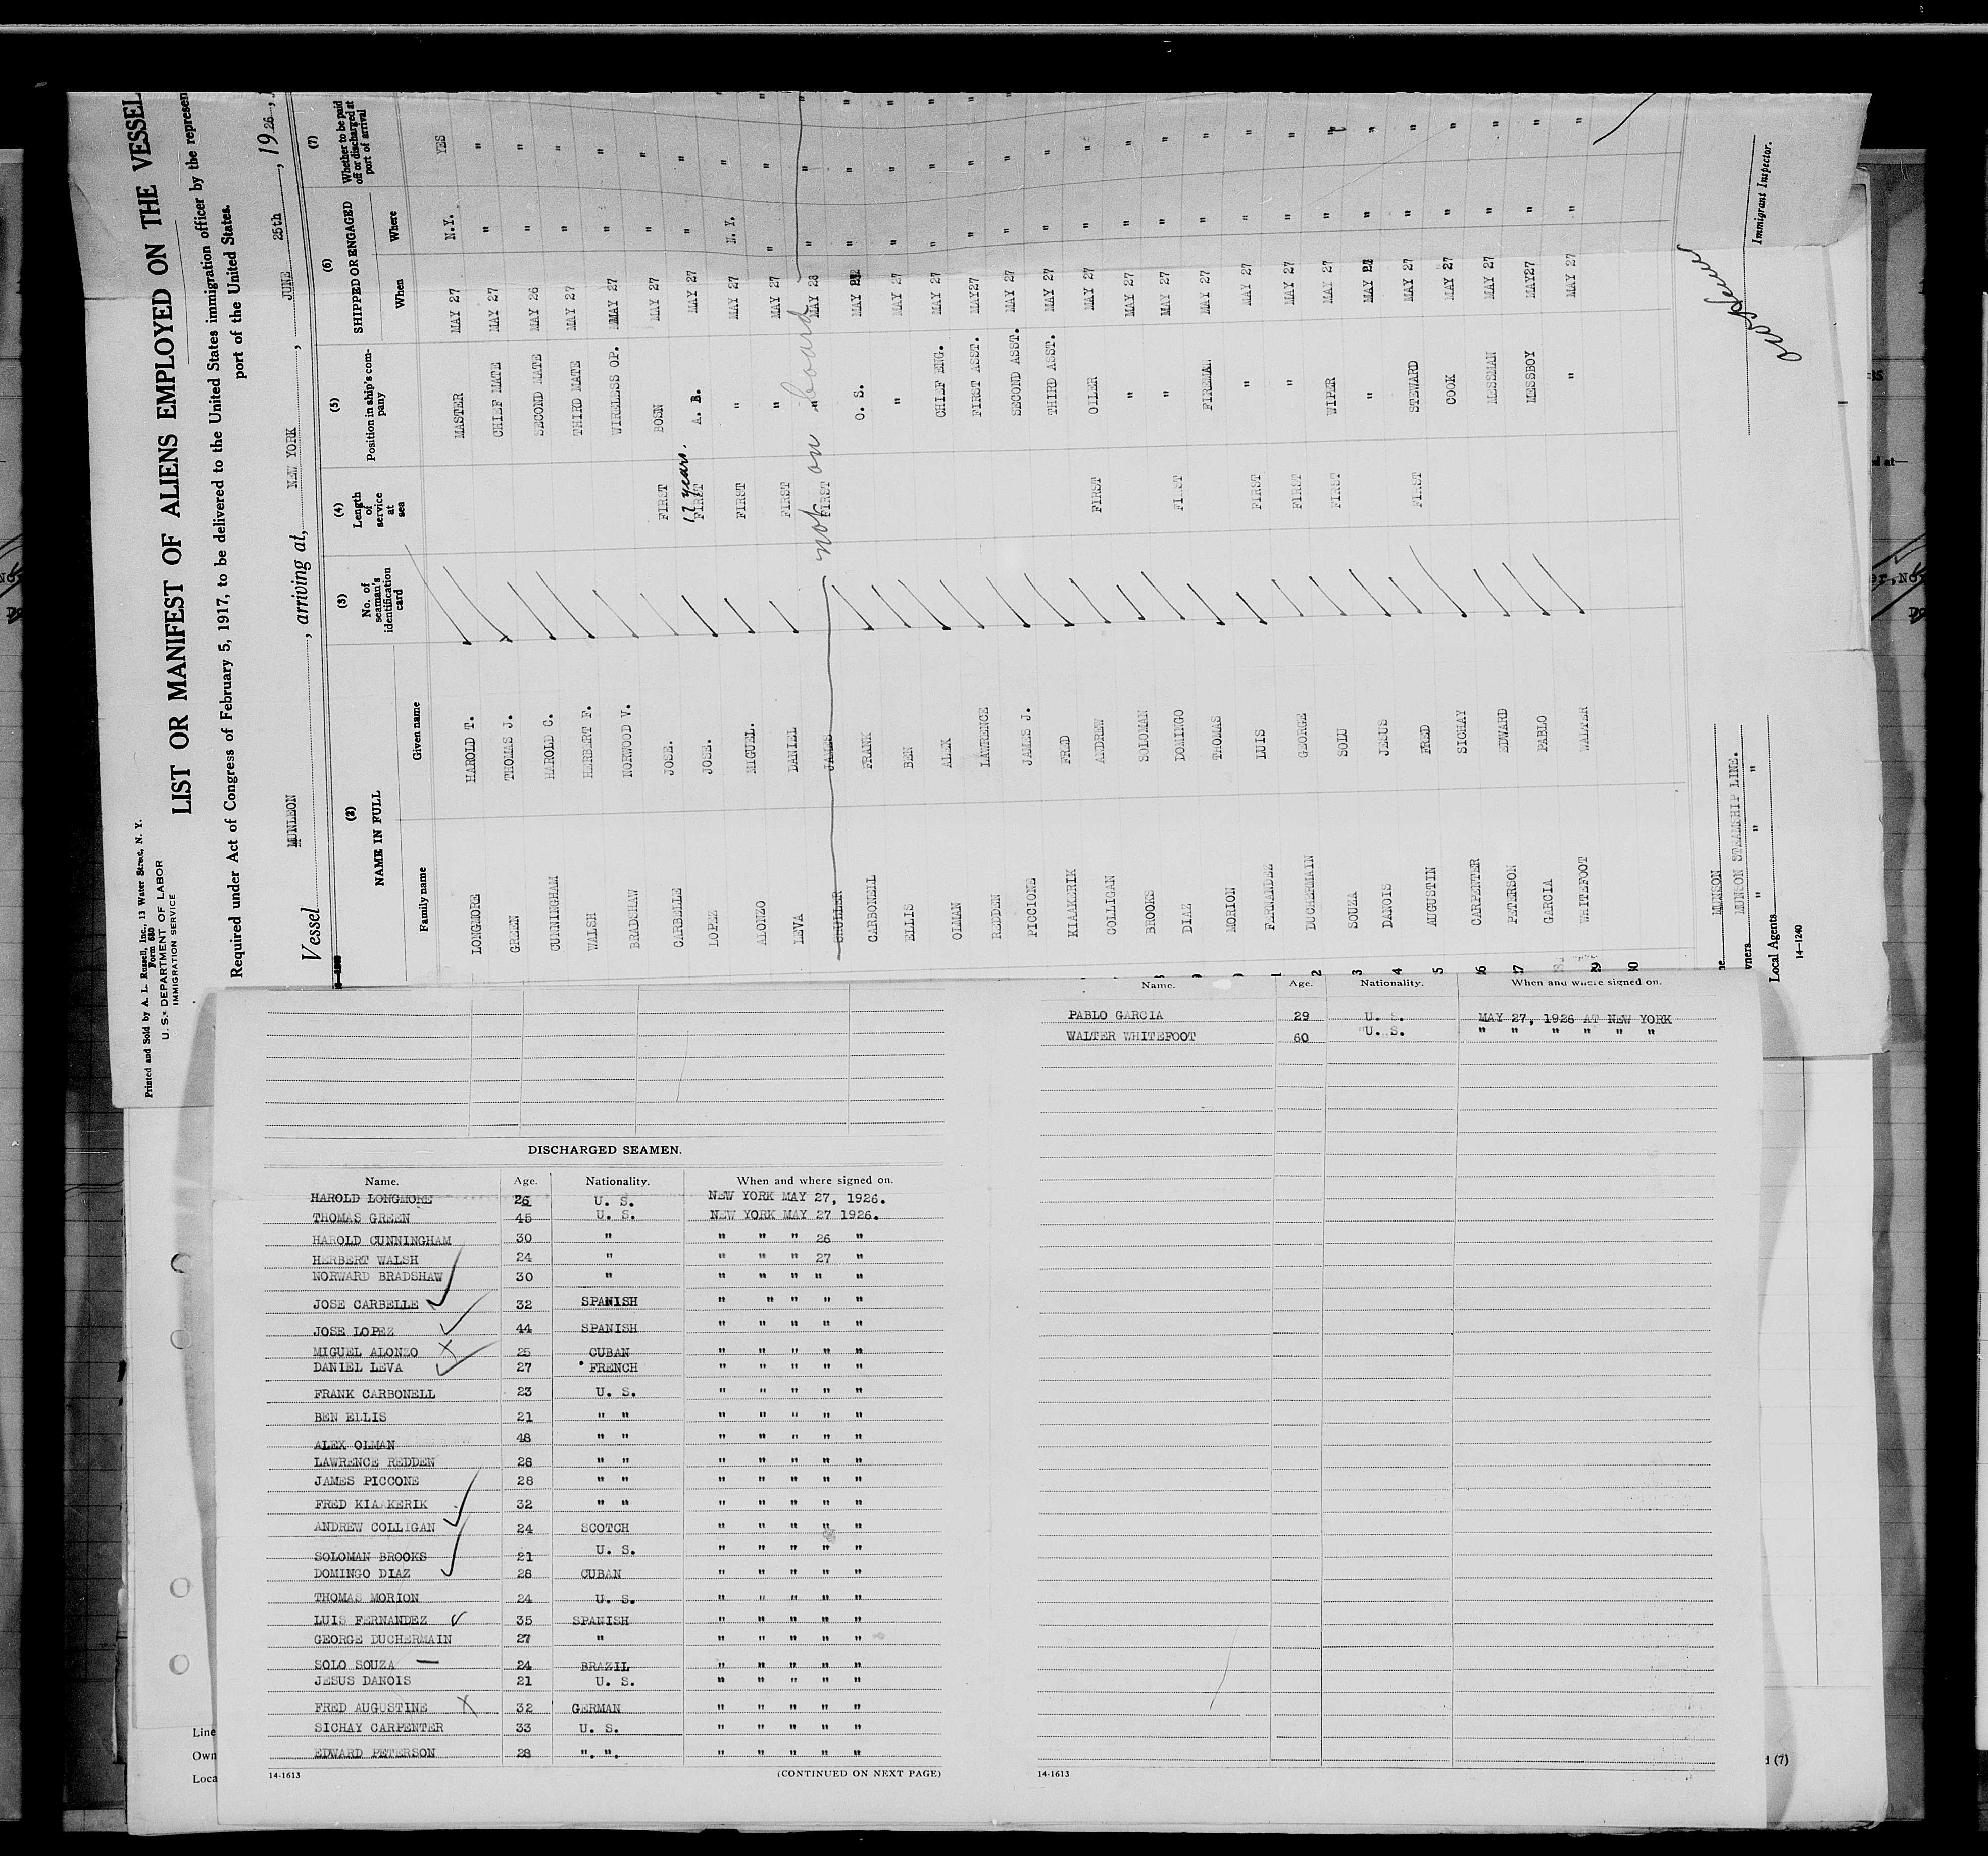 Printed and Sold by A. L. Russell, Inc., 13 Water Street, N. Y.
Form 680
U. S. DEPARTMENT OF LABOR
IMMIGRATION SERVICE
LIST OR MANIFEST OF ALIENS EMPLOYED ON THE VESSEL
Required under Act of Congress of February 5, 1917, to be delivered to the United States immigration officer by the represen
port of the United States.
Vessel MUNLEON, arriving at, NEW YORK, JUNE 25th, 1926,
(2) (3) (4) (5) (6) (7)
NAME IN FULL
No. of seaman's identification card
Length of service at sea
Position in ship's company
SHIPPED OR ENGAGED
Whether to be paid off or discharged at port of arrival
Family name Given name When Where
LONGMORE HAROLD T. MASTER MAY 27 N.Y. YES
GREEN THOMAS J. CHIEF MATE MAY 27 " "
CUNNINGHAM HAROLD C. SECOND MATE MAY 26 " "
WALSH HERBERT F. THIRD MATE MAY 27 " "
BRADSHAW NORWOOD V. WIRELESS OP. MAY 27 " "
CARBELLE JOSE. FIRST BOSN MAY 27 " "
LOPEZ JOSE. FIRST 17 years. A. B. MAY 27 " "
ALONZO MIGUEL. FIRST " MAY 27 N. Y. "
LEVA DANIEL FIRST " MAY 27 " "
JAMES not on board FIRST " MAY 28 " "
CARBONELL FRANK O. S. MAY " "
ELLIS BEN " MAY 27 " "
OLMAN ALEX CHIEF ENG. MAY 27 " "
REDDEN LAWRENCE FIRST ASST. MAY27 " "
PICCIONE JAMES J. SECOND ASST. MAY 27 " "
KIAAKERIK FRED THIRD ASST. MAY 27 " "
COLLIGAN ANDREW FIRST OILER MAY 27 " "
BROOKS SOLOMAN " MAY 27 " "
DIAZ DOMINGO FIRST " MAY 27 " "
MORION THOMAS FIREMAN MAY 27 " "
FERNANDEZ LUIS FIRST " MAY 27 " "
DUCHERMAIN GEORGE FIRST " MAY 27 " "
SOUZA SOLU FIRST WIPER MAY 27 " "
DANOIS JESUS " MAY 27 " "
AUGUSTIN FRED FIRST STEWARD MAY 27 " "
CARPENTER SICHAY COOK MAY 27 " "
PETERSON EDWARD MESSMAN MAY 27 " "
GARCIA PABLO MESSBOY MAY27 " "
WHITEFOOT WALTER " MAY 27 " "
MUNSON
MUNSON STEAMSHIP LINE.
Local Agents " " "
14—1240
Immigrant Inspector.
DISCHARGED SEAMEN.
Name. Age. Nationality. When and where signed on.
HAROLD LONGMORE 26 U. S. NEW YORK MAY 27, 1926.
THOMAS GREEN 45 U. S. NEW YORK MAY 27 1926.
HAROLD CUNNINGHAM 30 " " " " 26 "
HERBERT WALSH 24 " " " " 27 "
NORWARD BRADSHAW 30 " " " " " "
JOSE CARBELLE 32 SPANISH " " " " "
JOSE LOPEZ 44 SPANISH " " " " "
MIGUEL ALONZO 25 CUBAN " " " " "
DANIEL LEVA 27 FRENCH " " " " "
FRANK CARBONELL 23 U. S. " " " " "
BEN ELLIS 21 " " " " " " "
ALEX OLMAN 48 " " " " " " "
LAWRENCE REDDEN 28 " " " " " " "
JAMES PICCONE 28 " " " " " " "
FRED KIAAKERIK 32 " " " " " " "
ANDREW COLLIGAN 24 SCOTCH " " " " "
SOLOMAN BROOKS 21 U. S. " " " " "
DOMINGO DIAZ 28 CUBAN " " " " "
THOMAS MORION 24 U. S. " " " " "
LUIS FERNANDEZ 35 SPANISH " " " " "
GEORGE DUCHERMAIN 27 " " " " " "
SOLO SOUZA 24 BRAZIL " " " " "
JESUS DANOIS 21 U. S. " " " " "
FRED AUGUSTINE 32 GERMAN " " " " "
SICHAY CARPENTER 33 U. S. " " " " "
EDWARD PETERSON 28 ". ". " " " " "
14-1613 (CONTINUED ON NEXT PAGE)
Name. Age. Nationality. When and where signed on.
PABLO GARCIA 29 U. S. MAY 27, 1926 AT NEW YORK
WALTER WHITEFOOT 60 U. S. " " " " " "
14-1613